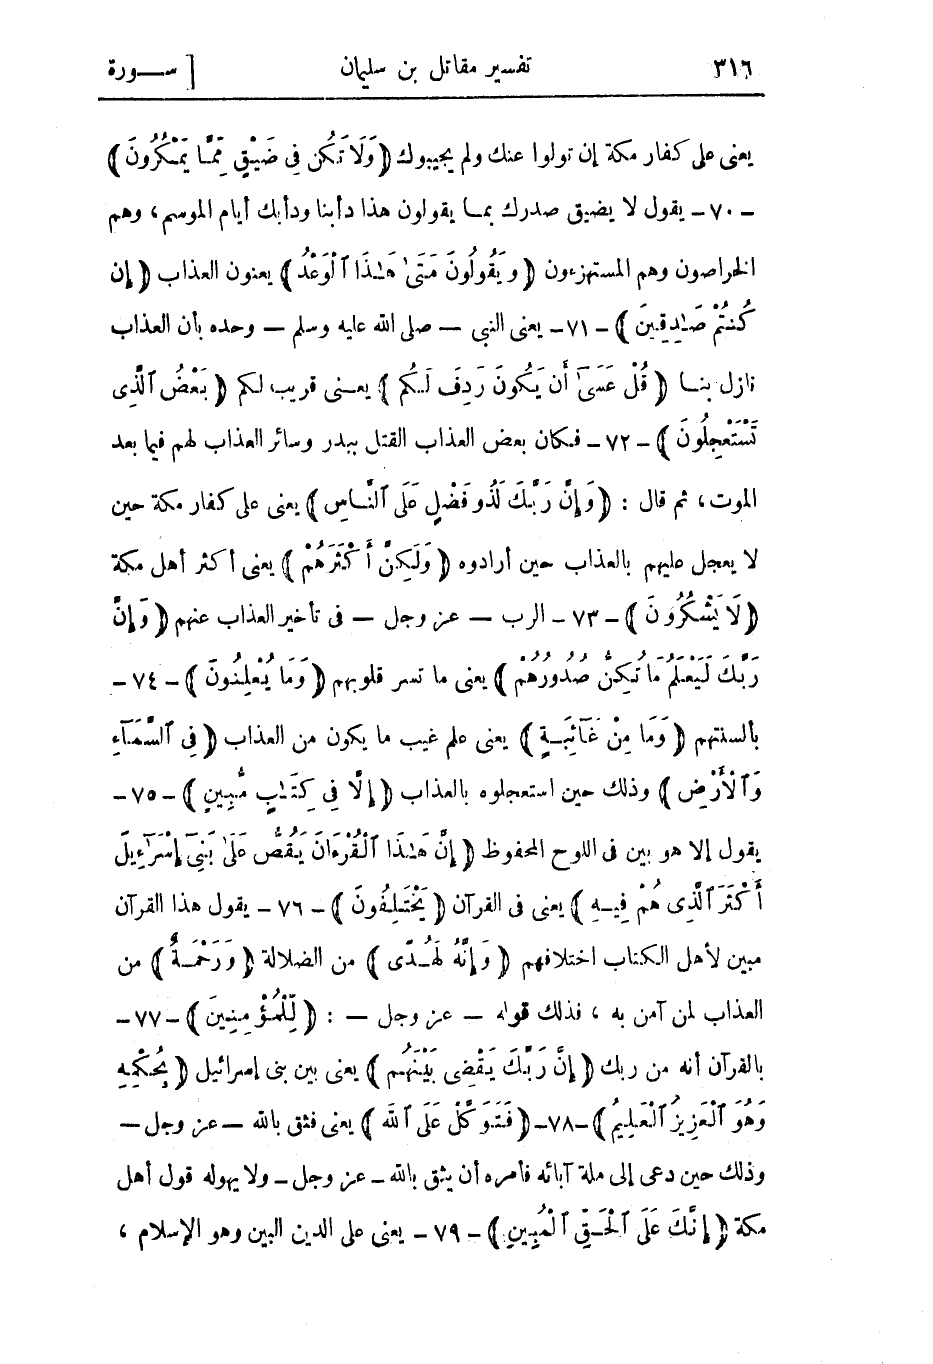 ٣١٦ تفسير مقاتل بن سليمان [ سـورة
يعنى على كفار مكة إن تولوا عنك ولم يجيبوك ﴿ وَلَا تَكُن فِى ضَيْقٍ مِّمَّا يَمْكُرُونَ ﴾
- ٧٠ - يقول لا يضيق صدرك بمـا يقولون هذا دأبنا ودأبك أيام الموسم ، وهم
الخراصون وهم المستهزءون ﴿ وَيَقُولُونَ مَتَىٰ هَـٰذَا ٱلْوَعْدُ ﴾ يعنون العذاب ﴿ إِن
كُنتُمْ صَـٰدِقِينَ ﴾ - ٧١ - يعنى النبى — صلى الله عليه وسلم — وحده بأن العذاب
نازل بنـا ﴿ قُلْ عَسَىٰٓ أَن يَكُونَ رَدِفَ لَـكُم ﴾ يعـنى قريب لكم ﴿ بَعْضُ ٱلَّذِى
تَسْتَعْجِلُونَ ﴾ - ٧٢ - فـكان بعض العذاب القتل ببدر وسائر العذاب لهم فيما بعد
الموت ، ثم قال : ﴿ وَإِنَّ رَبَّكَ لَذُو فَضْلٍ عَلَى ٱلنَّـاسِ ﴾ يعنى على كفار مكة حين
لا يعجل عليهم بالعذاب حين أرادوه ﴿ وَلَـٰكِنَّ أَكْثَرَهُمْ ﴾ يعنى أكثر أهل مكة
﴿ لَا يَشْكُرُونَ ﴾ - ٧٣ - الرب — عز وجل — فى تأخير العذاب عنهم ﴿ وَإِنَّ
رَبَّكَ لَيَعْلَمُ مَا تُكِنُّ صُدُورُهُمْ ﴾ يعنى ما تسر قلوبهم ﴿ وَمَا يُعْلِنُونَ ﴾ - ٧٤ -
بألسنتهم ﴿ وَمَا مِنْ غَآئِبَـةٍ ﴾ يعنى علم غيب ما يكون من العذاب ﴿ فِى ٱلسَّمَآءِ
وَٱلْأَرْضِ ﴾ وذلك حين استعجلوه بالعذاب ﴿ إِلَّا فِى كِتَـٰبٍ مُّبِينٍ ﴾ - ٧٥ -
يقول إلا هو بين فى اللوح المحفوظ ﴿ إِنَّ هَـٰذَا ٱلْقُرْءَانَ يَقُصُّ عَلَىٰ بَنِىٓ إِسْرَٰٓءِيلَ
أَكْثَرَ ٱلَّذِى هُمْ فِيـهِ ﴾ يعنى فى القرآن ﴿ يَخْتَلِفُونَ ﴾ - ٧٦ - يقول هذا القرآن
مبين لأهل الكتاب اختلافهم ﴿ وَإِنَّهُ لَهُـدًى ﴾ من الضلالة ﴿ وَرَحْمَـةٌ ﴾ من
العذاب لمن آمن به ، فذلك قوله — عز وجل — : ﴿ لِّلْمُؤْمِنِينَ ﴾ - ٧٧ -
بالقرآن أنه من ربك ﴿ إِنَّ رَبَّكَ يَقْضِى بَيْنَهُم ﴾ يعنى بين بنى إسرائيل ﴿ بِحُكْمِهِ
وَهُوَ ٱلْعَزِيزُ ٱلْعَلِيمُ ﴾ - ٧٨ - ﴿ فَتَوَكَّلْ عَلَى ٱللَّهِ ﴾ يعنى فثق بالله — عز وجل —
وذلك حين دعى إلى ملة آبائه فأمره أن يثق بالله - عز وجل - ولا يهوله قول أهل
مكة ﴿ إِنَّكَ عَلَى ٱلْحَـقِّ ٱلْمُبِينِ ﴾ - ٧٩ - يعنى على الدين البين وهو الإسلام ،